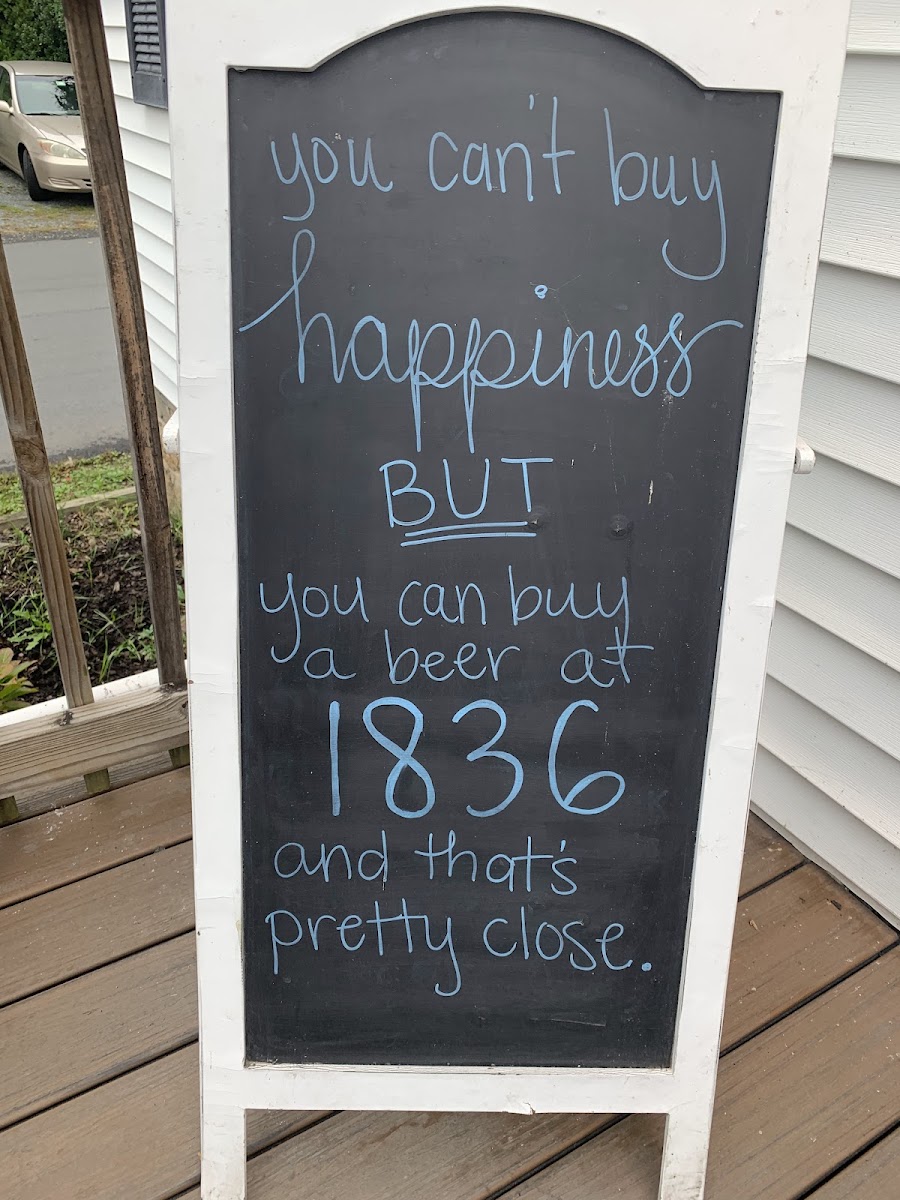 you can't buy
happiness
BUT
you can buy
a beer at
1836
and that's
pretty close.